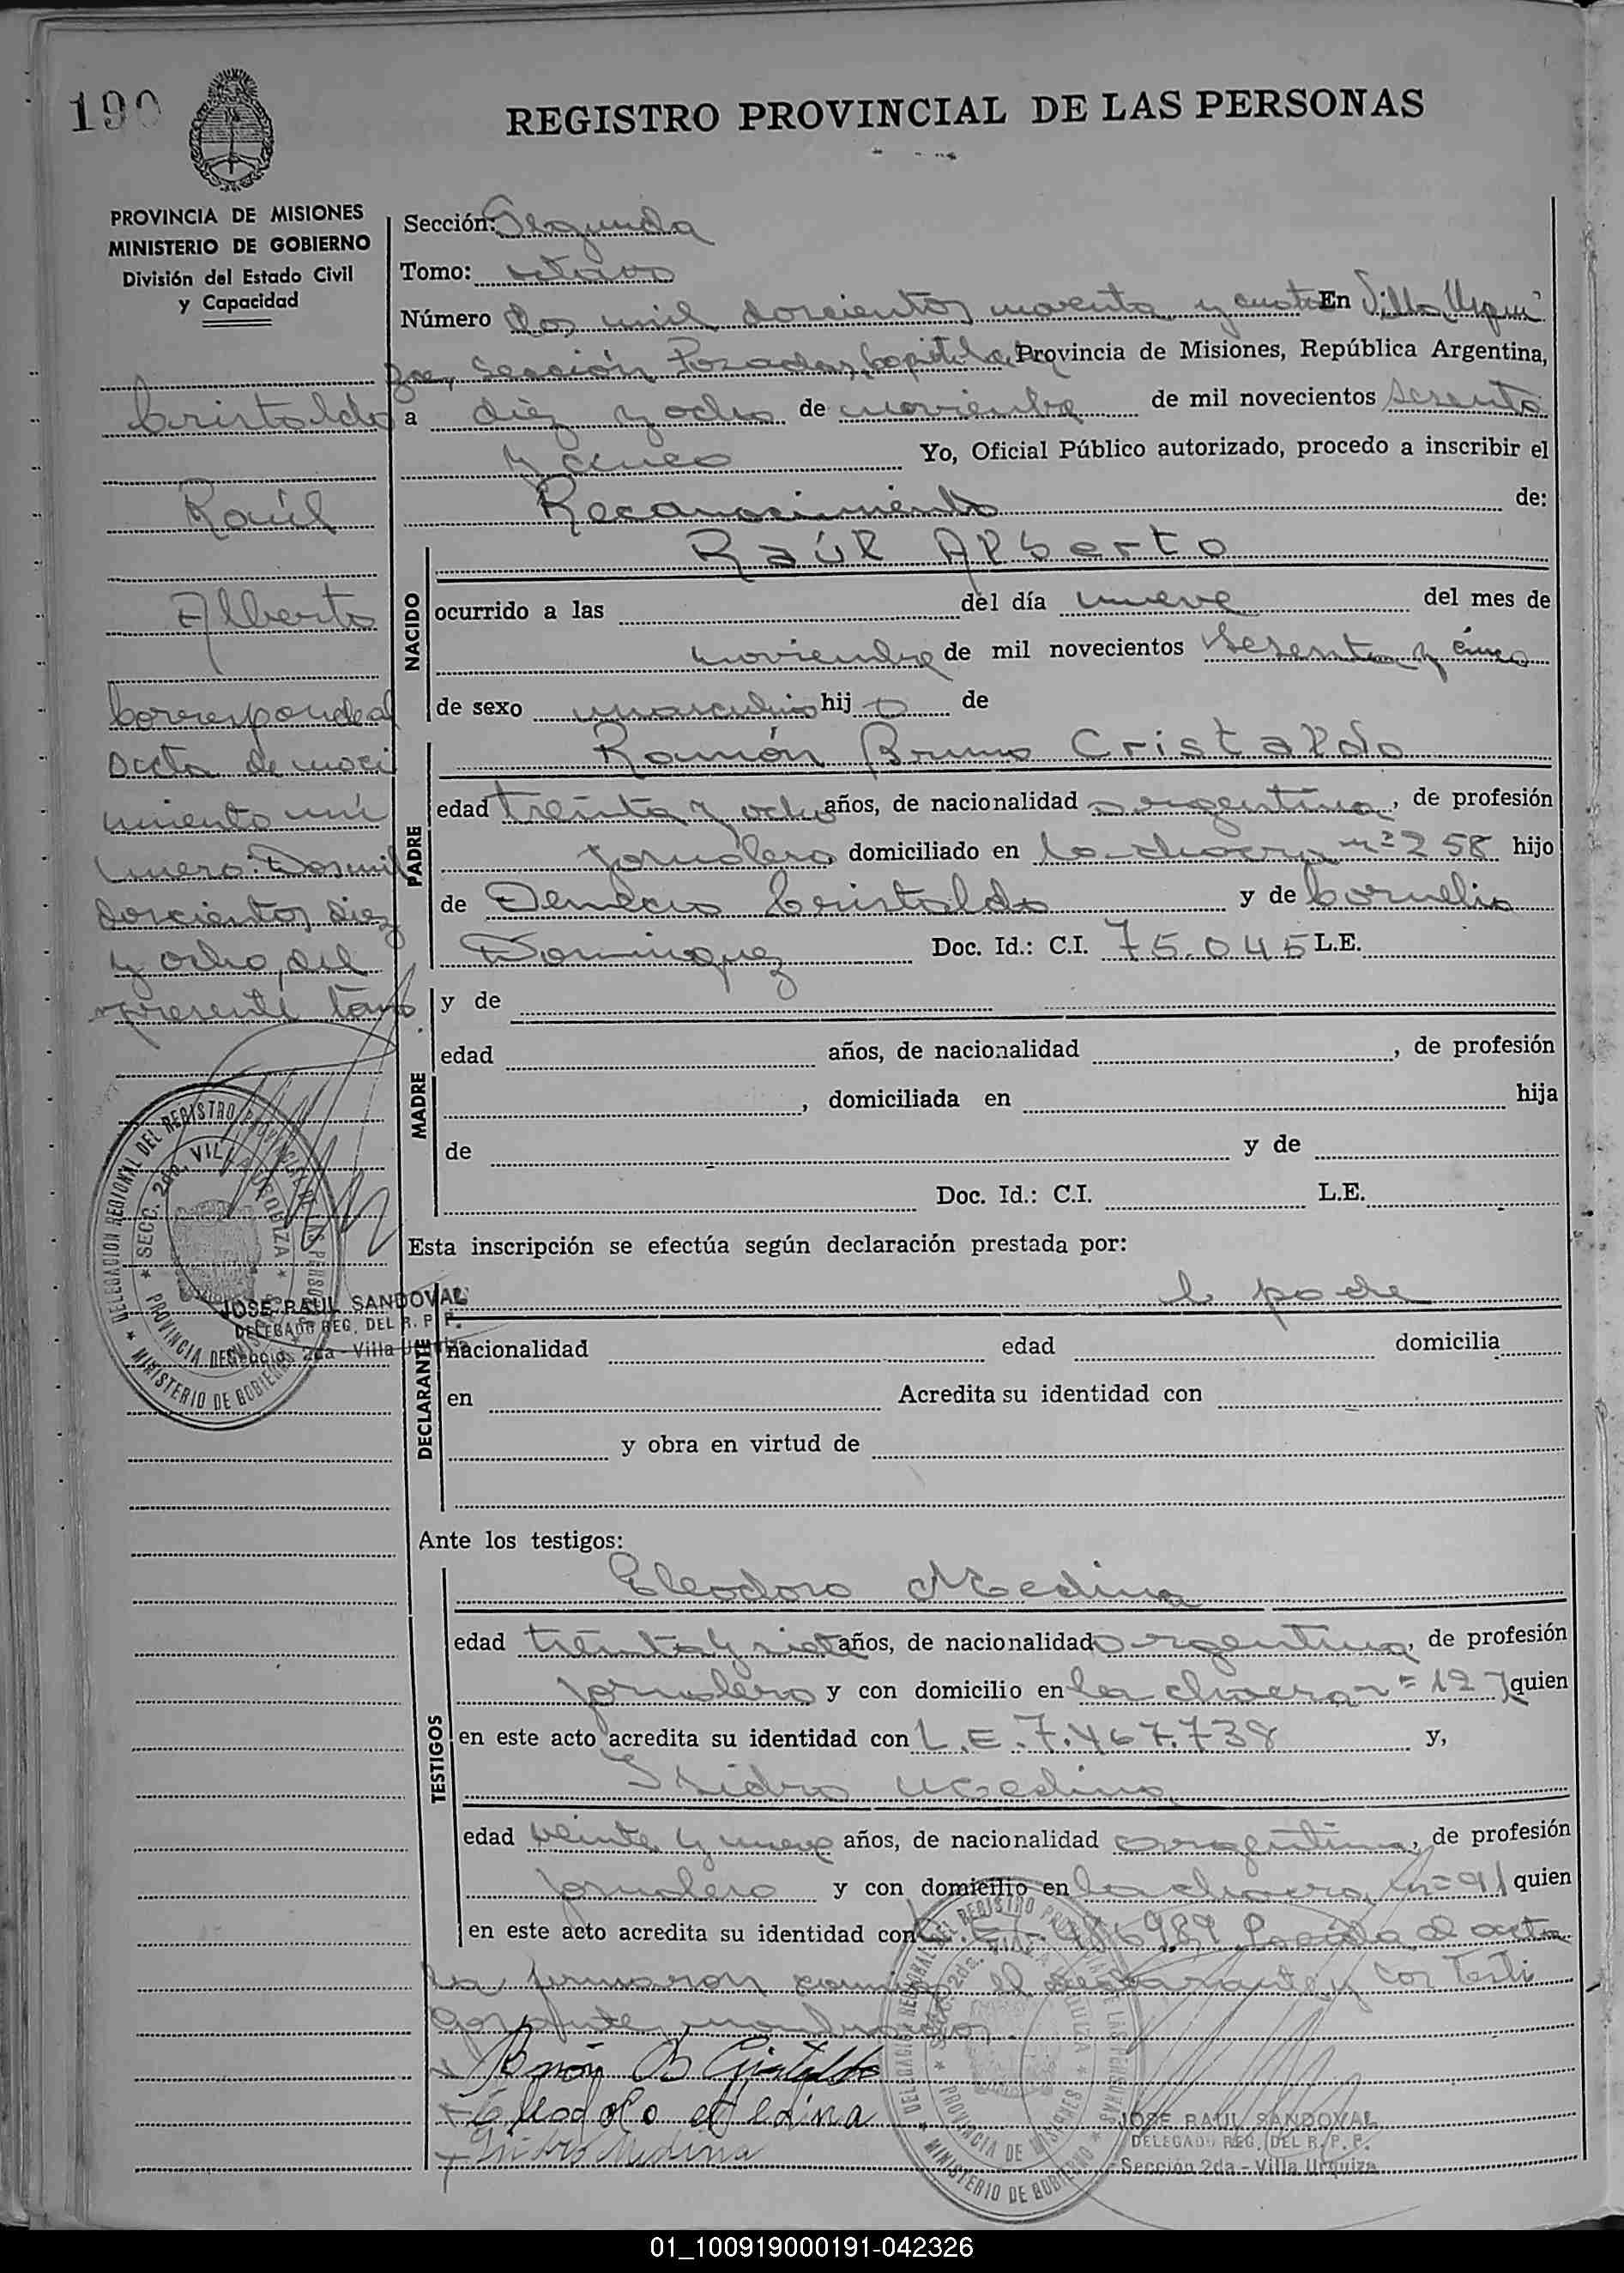 190
REGISTRO PROVINCIAL DE LAS PERSONAS
PROVINCIA DE MISIONES
MINISTERIO DE GOBIERNO
División del Estado Civil
y Capacidad
Cristaldo
Raúl
Alberto
Corresponde al
acta de naci
miento nú
mero: Dos mil
doscientos diez
y ocho, del
presente tomo
Sección: Segunda
Tomo: octavo
Número dos mil doscientos noventa y cuatro En Villa Urqui
za, Sección Posadas, Capital de Provincia de Misiones, República Argentina,
a diez y ocho de noviembre de mil novecientos sesenta
y cinco Yo, Oficial Público autorizado, procedo a inscribir el
Reconocimiento de:
NACIDO
Raúl Alberto
ocurrido a las del día nueve del mes de
noviembre de mil novecientos sesenta y cinco
de sexo masculino hijo de
PADRE
Ramón Bruno Cristaldo
edad treinta y ocho años, de nacionalidad argentina, de profesión
jornalero, domiciliado en la chacra nº 258 hijo
de Cristaldo y de Cornelia
Dominguez Doc. Id.: C.I. 75.045 L.E.
MADRE
y de
edad años, de nacionalidad , de profesión
, domiciliada en hija
de y de
Doc. Id.: C.I. L.E.
Esta inscripción se efectúa según declaración prestada por:
DECLARANTE
el padre
nacionalidad edad domicilia
en Acredita su identidad con
y obra en virtud de
DELEGACION REGIONAL DEL REGISTRO PROVINCIAL DE LAS PERSONAS
SECC. 2da. VILLA URQUIZA
PROVINCIA DE MISIONES
MINISTERIO DE GOBIERNO
JOSE RAUL SANDOVAL
DELEGADO REG. DEL R. P. P.
Sección 2da - Villa Urquiza
Ante los testigos:
TESTIGOS
Eleodoro Medina
edad treinta y siete años, de nacionalidad argentina, de profesión
jornalero y con domicilio en la chacra nº 127 quien
en este acto acredita su identidad con L.E. 7.467.738 y,
Isidro Medina
edad veinte y nueve años, de nacionalidad argentina, de profesión
jornalero y con domicilio en la chacra nº 91 quien
en este acto acredita su identidad con Leída el acta
la firmaron conmigo el declarante y los testi
gos ante mencionados.
Ramón B Cristaldo
Eleodoro Medina
Isidro Medina
DELEGACION REGIONAL DEL REGISTRO PROVINCIAL DE LAS PERSONAS
SECC. 2da. VILLA URQUIZA
PROVINCIA DE MISIONES
MINISTERIO DE GOBIERNO
JOSE RAUL SANDOVAL
DELEGADO REG. DEL R. P. P.
Sección 2da - Villa Urquiza
01_100919000191-042326